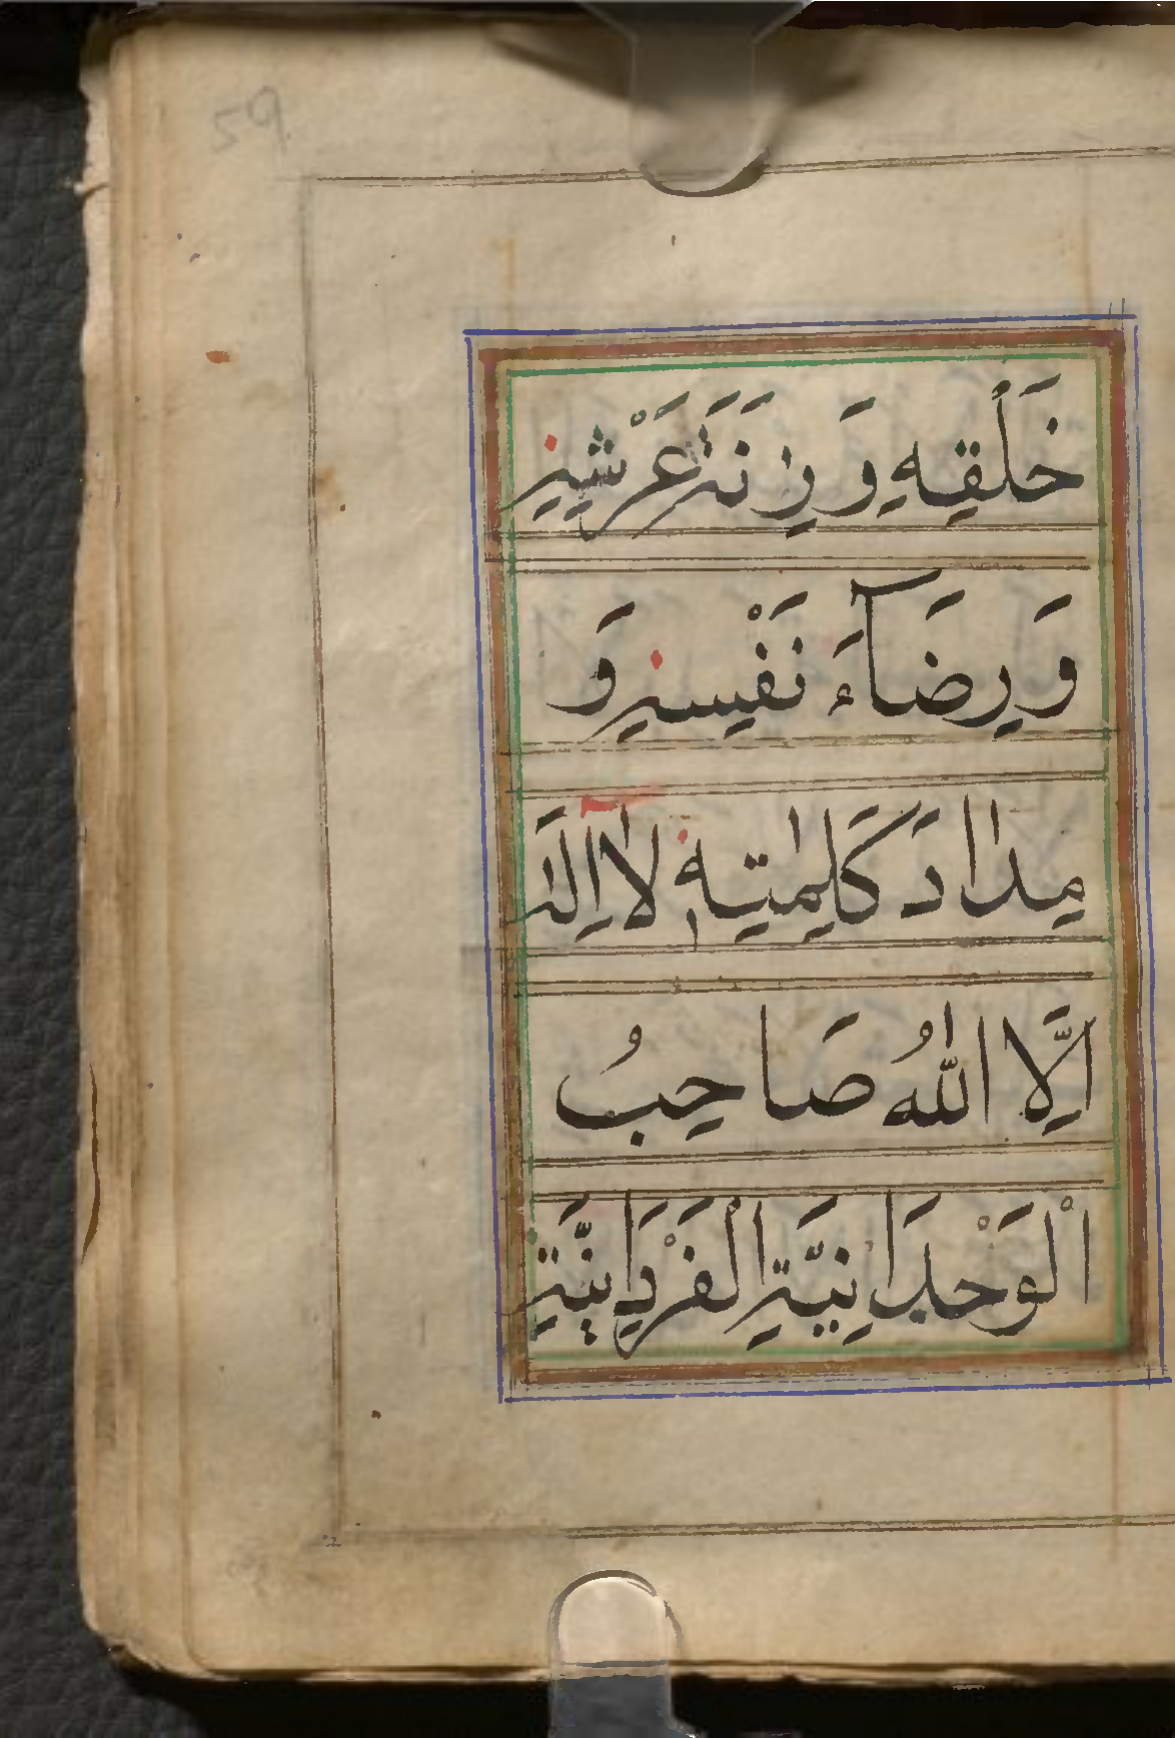 59
خَلْقِهِ وَ زِنَةَ عَرْشِهِ
وَ رِضَآءَ نَفْسِهِ وَ
مِدَادَ كَلِمٰتِهٖ لَا اِلٰهَ
اِلَّا اللّٰهُ صَاحِبُ
الْوَحْدَانِيَّةِ الْفَرْدَانِيَّةِ